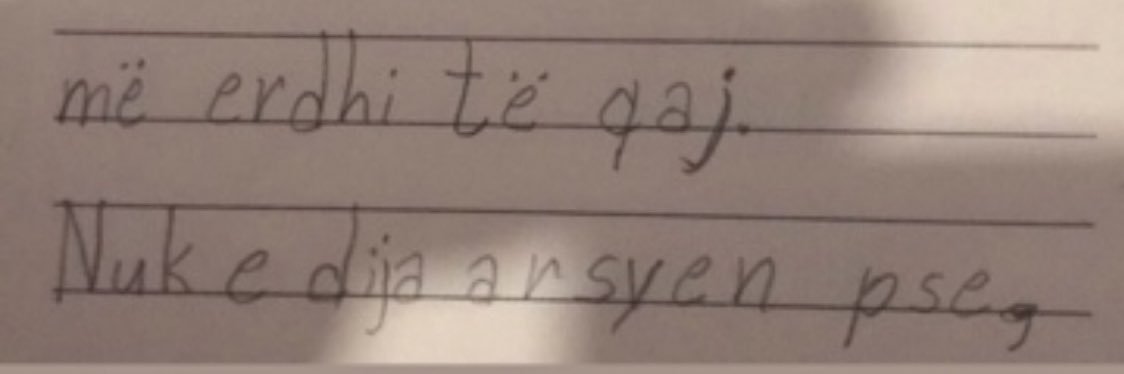 më erdhi të qaj.
Nuk e dija arsyen pse,